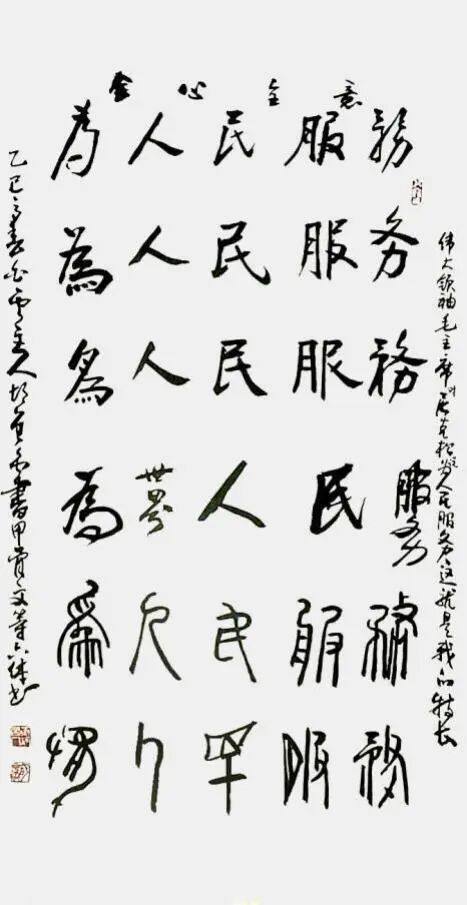 全心全意
為人民服務
為人民服务
為人民服務
為世界人民服务
為人民服務
為人民服務
伟大领袖毛主席 为人民服务这就是我的特长
乙巳之春 主人 書甲骨文等六体书